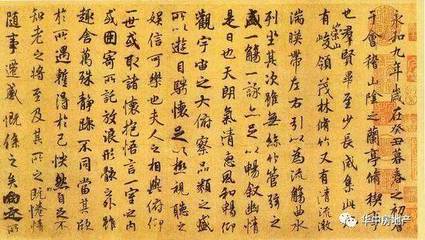 永和九年歲在癸丑暮春之初
于會稽山陰之蘭亭脩稧
也群賢畢至少長咸集此
有崇山峻領茂林脩竹又有清流激
湍暎帶左右引以為流觴曲水
列坐其次雖無絲竹管弦之
盛一觴一詠亦足以暢敘幽情
是日也天朗氣清惠風和暢仰
觀宇宙之大俯察品類之盛
所以遊目騁懷足以極視聽之
娛信可樂也夫人之相與俯仰
一世或取諸懷抱悟言一室之內
或因寄所託放浪形骸之外雖
趣舍萬殊靜躁不同當其欣
於所遇蹔得於己怏然自足不
知老之將至及其所之既惓情
隨事遷感慨係之矣向之所
华中房地产